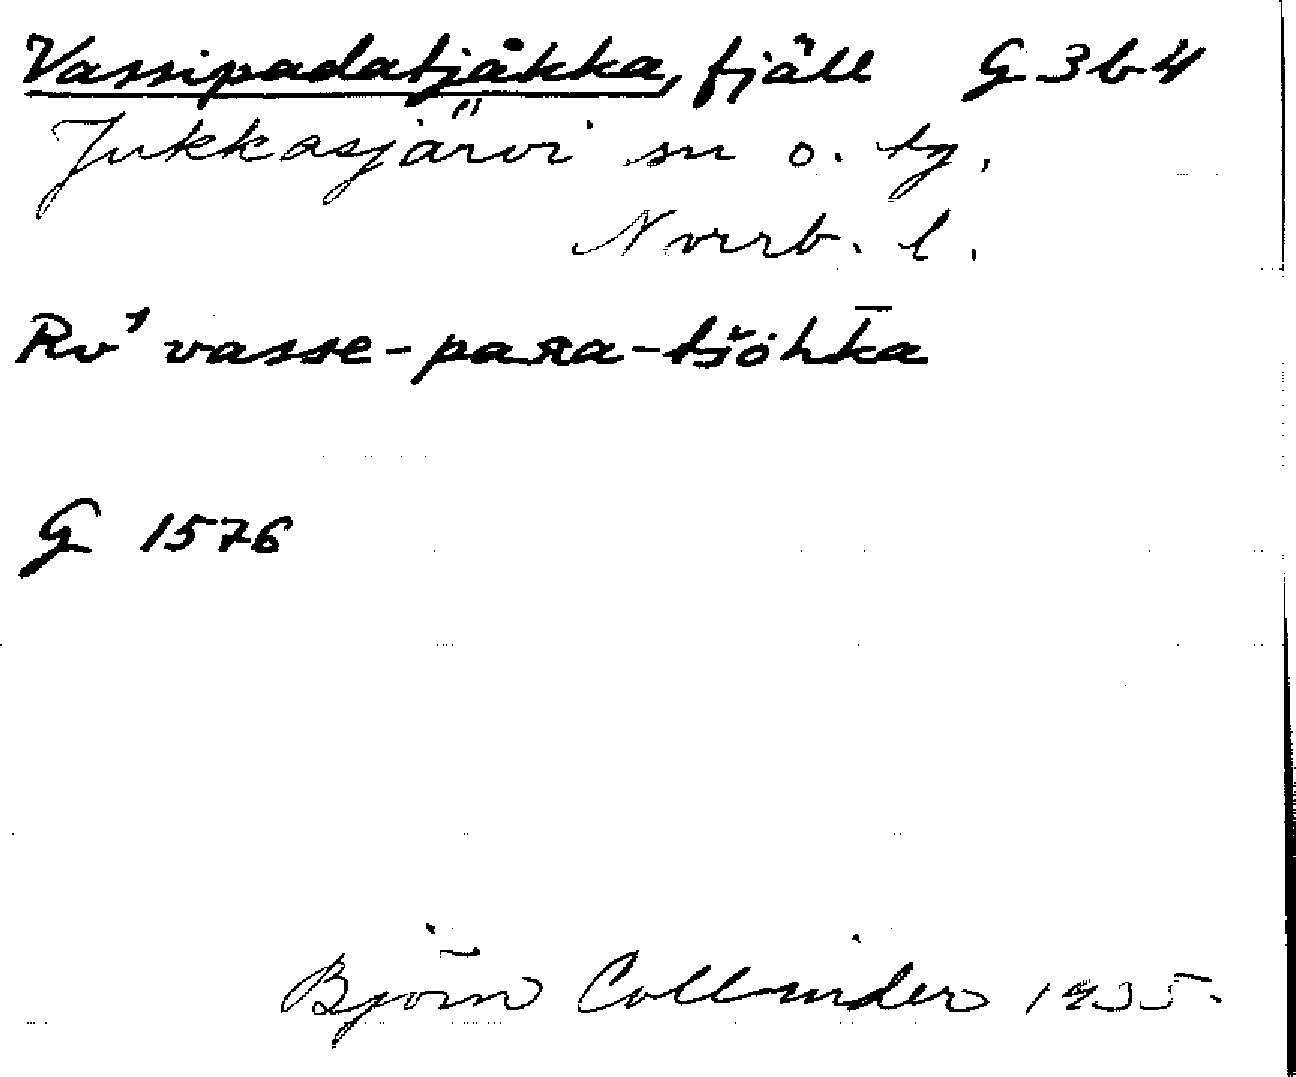 Vassipadatjåkka, fjäll G 3b4
Jukkasjärvi sn o. tg.
Nvrrb. l.
Rv¹ vasse-para-tšöhk̄a
G 1576
Björn Collinder 1935.